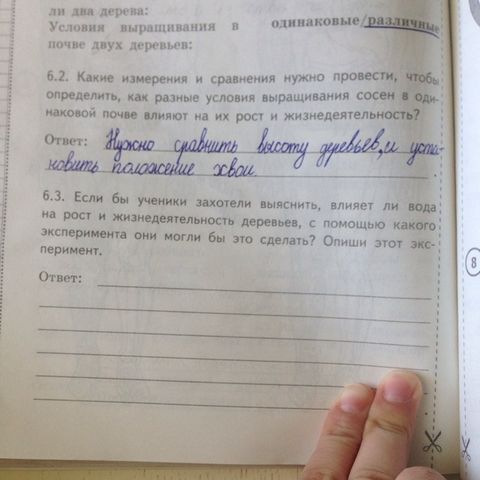 ли два дерева:
Условия выращивания в одинаковые/различные
почве двух деревьев:
6.2. Какие измерения и сравнения нужно провести, чтобы
определить, как разные условия выращивания сосен в оди-
наковой почве влияют на их рост и жизнедеятельность?
Ответ: Нужно сравнить высоту деревьев, и уста-
новить положение хвои.
6.3. Если бы ученики захотели выяснить, влияет ли вода
на рост и жизнедеятельность деревьев, с помощью какого
эксперимента они могли бы это сделать? Опиши этот экс-
перимент.
Ответ:
8